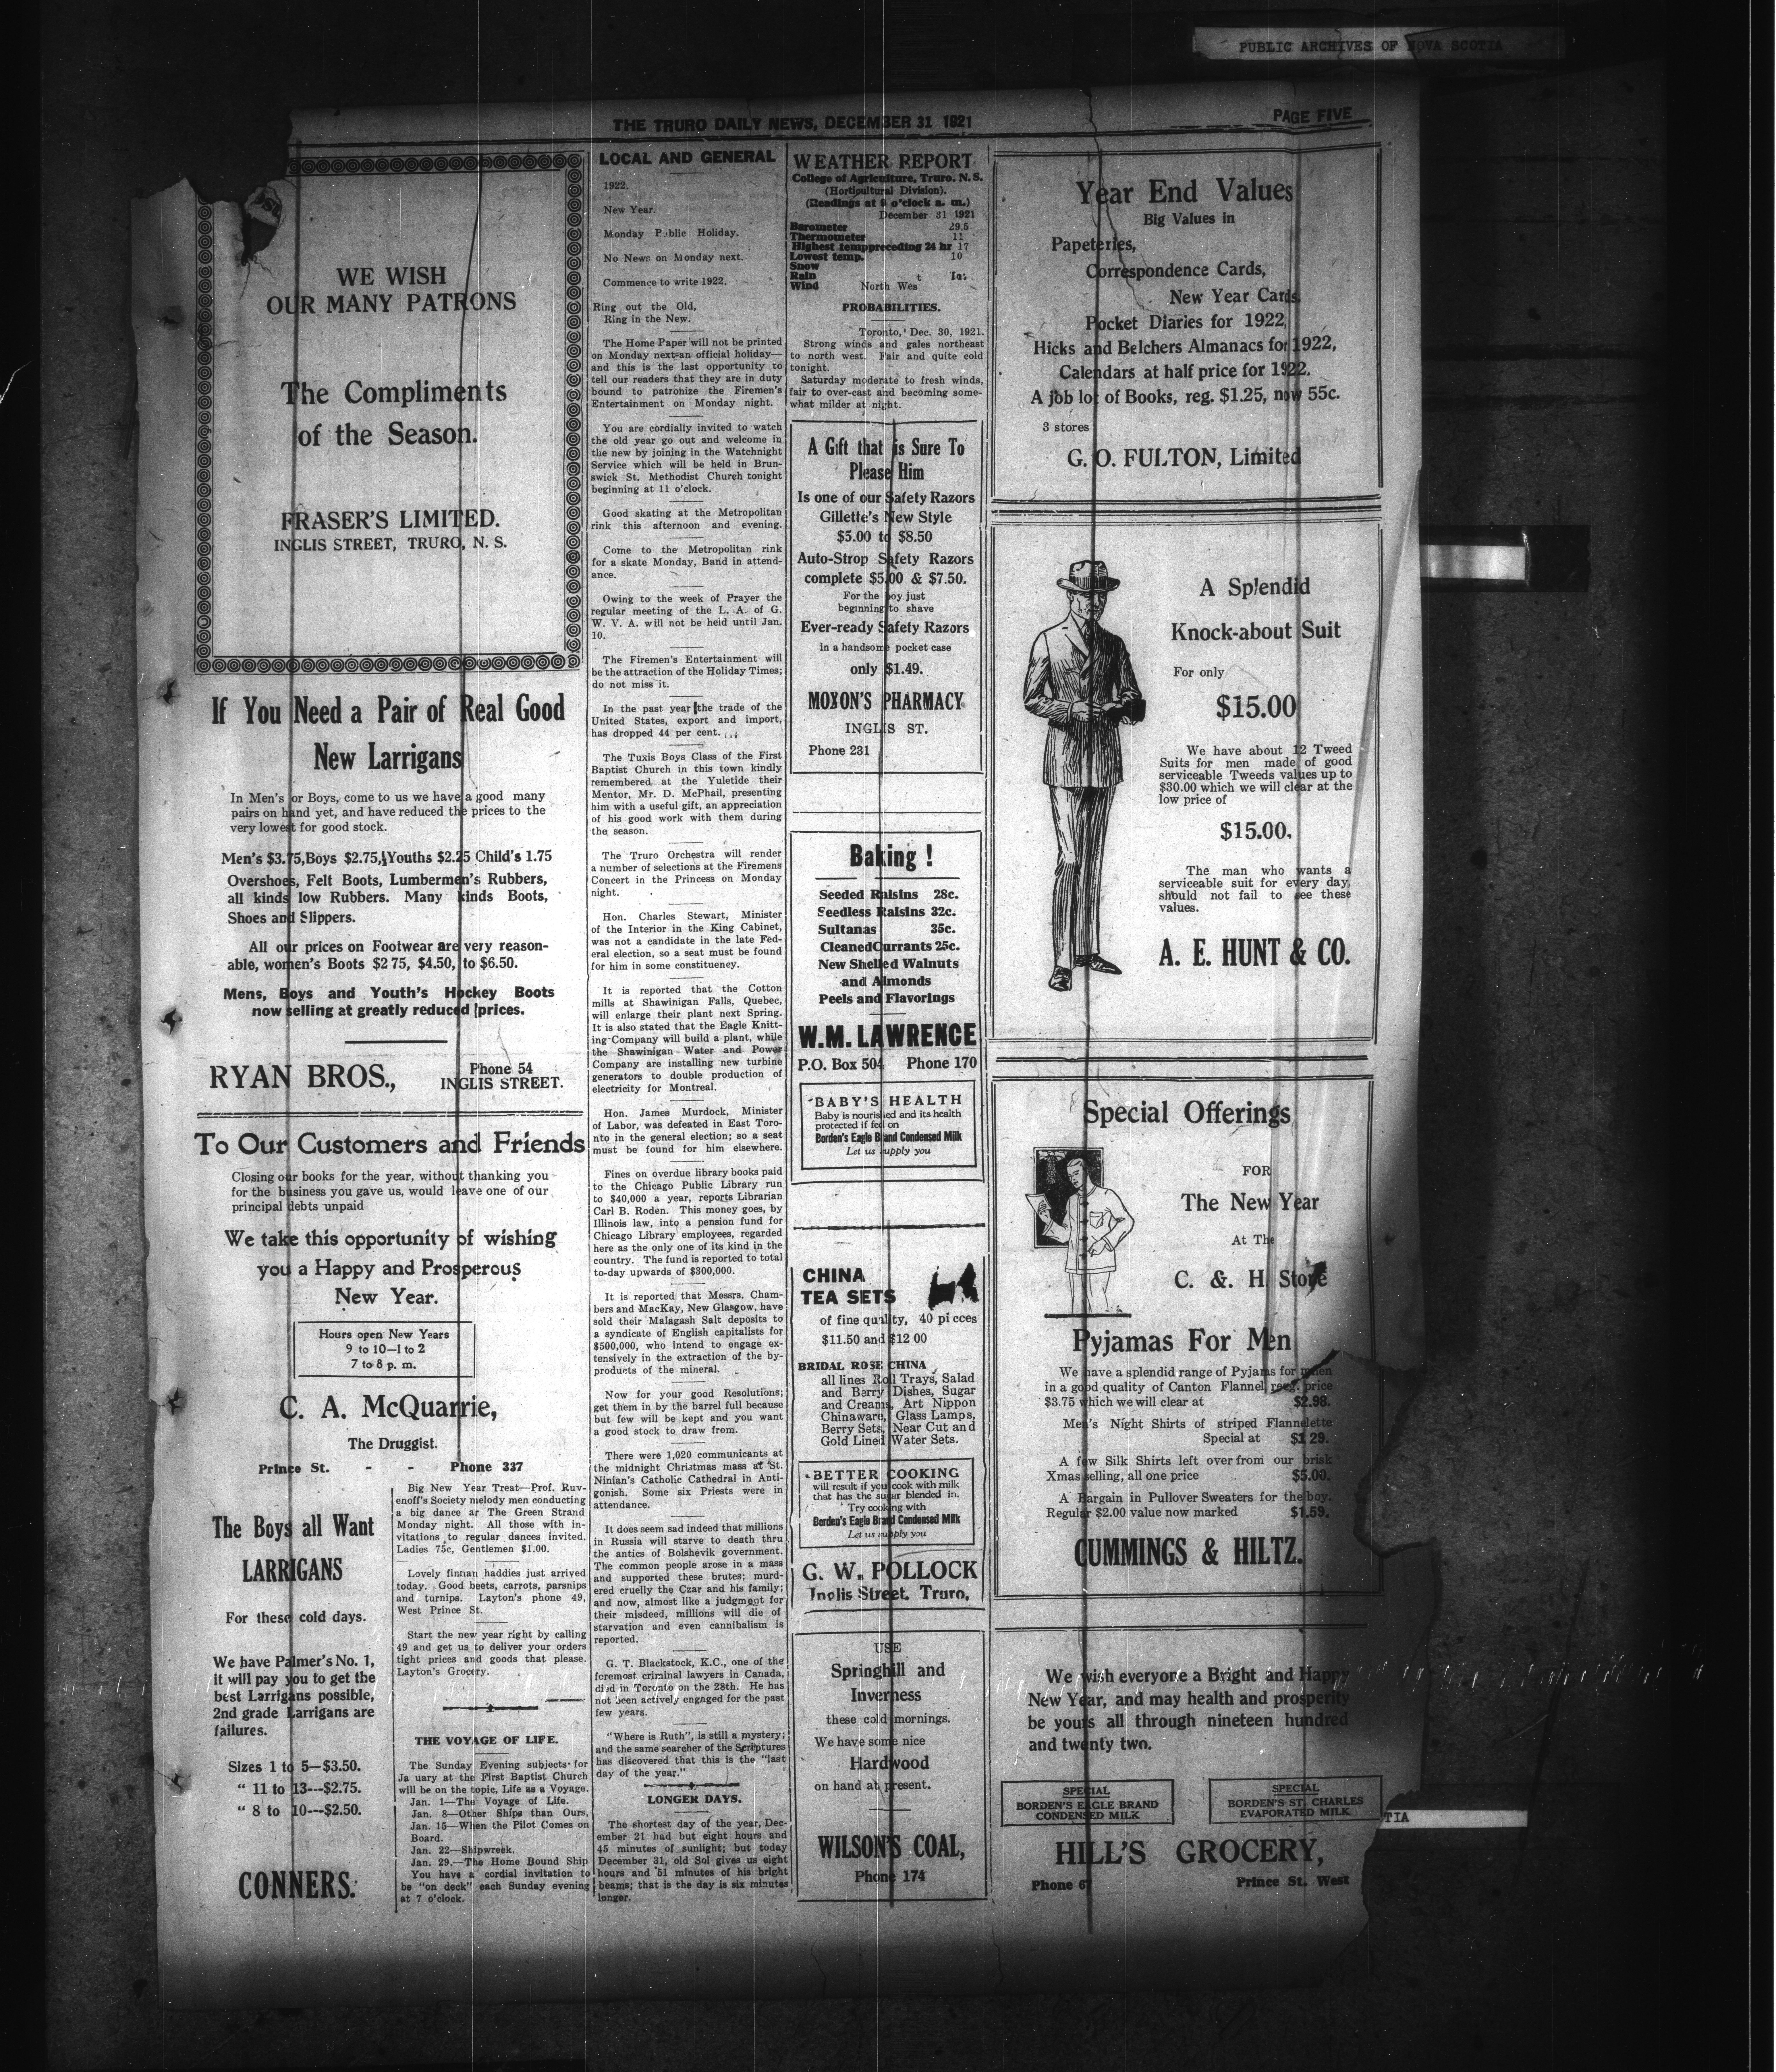 PUBLIC ARCHIVES OF NOVA SCOTIA
THE TRURO DAILY NEWS, DECEMBER 31 1921
PAGE FIVE
WE WISH
OUR MANY PATRONS
The Compliments
of the Season.
FRASER'S LIMITED.
INGLIS STREET, TRURO, N. S.
If You Need a Pair of Real Good
New Larrigans
In Men's or Boys, come to us we have a good many
pairs on hand yet, and have reduced the prices to the
very lowest for good stock.
Men's $3.75, Boys $2.75, Youths $2.25 Child's 1.75
Overshoes, Felt Boots, Lumbermen's Rubbers,
all kinds low Rubbers. Many kinds Boots,
Shoes and Slippers.
All our prices on Footwear are very reason-
able, women's Boots $2 75, $4.50, to $6.50.
Mens, Boys and Youth's Hockey Boots
now selling at greatly reduced prices.
RYAN BROS.,
Phone 54
INGLIS STREET.
To Our Customers and Friends
Closing our books for the year, without thanking you
for the business you gave us, would leave one of our
principal debts unpaid
We take this opportunity of wishing
you a Happy and Prosperous
New Year.
Hours open New Years
9 to 10—1 to 2
7 to 8 p. m.
C. A. McQuarrie,
The Druggist.
Prince St. - - Phone 337
The Boys all Want
LARRIGANS
For these cold days.
We have Palmer's No. 1,
it will pay you to get the
best Larrigans possible,
2nd grade Larrigans are
failures.
Sizes 1 to 5—$3.50.
" 11 to 13---$2.75.
" 8 to 10---$2.50.
CONNERS.
Big New Year Treat—Prof. Ruv-
enoff's Society melody men conducting
a big dance ar The Green Strand
Monday night. All those with in-
vitations to regular dances invited.
Ladies 75c, Gentlemen $1.00.
Lovely finnan haddies just arrived
today. Good beets, carrots, parsnips
and turnips. Layton's phone 49,
West Prince St.
Start the new year right by calling
49 and get us to deliver your orders
tight prices and goods that please.
Layton's Grocery.
THE VOYAGE OF LIFE.
The Sunday Evening subjects for
Ja uary at the First Baptist Church
will be on the topic, Life as a Voyage.
Jan. 1—The Voyage of Life.
Jan. 8—Other Ships than Ours,
Jan. 15—When the Pilot Comes on
Board.
Jan. 22—Shipwreck.
Jan. 29.—The Home Bound Ship
You have a cordial invitation to
be "on deck" each Sunday evening
at 7 o'clock.
LOCAL AND GENERAL
1922.
New Year.
Monday Public Holiday.
No News on Monday next.
Commence to write 1922.
Ring out the Old,
Ring in the New.
The Home Paper will not be printed
on Monday next—an official holiday—
and this is the last opportunity to
tell our readers that they are in duty
bound to patronize the Firemen's
Entertainment on Monday night.
You are cordially invited to watch
the old year go out and welcome in
the new by joining in the Watchnight
Service which will be held in Brun-
swick St. Methodist Church tonight
beginning at 11 o'clock.
Good skating at the Metropolitan
rink this afternoon and evening.
Come to the Metropolitan rink
for a skate Monday, Band in attend-
ance.
Owing to the week of Prayer the
regular meeting of the L. A. of G.
W. V. A. will not be held until Jan.
10.
The Firemen's Entertainment will
be the attraction of the Holiday Times;
do not miss it.
In the past year the trade of the
United States, export and import,
has dropped 44 per cent.
The Tuxis Boys Class of the First
Baptist Church in this town kindly
remembered at the Yuletide their
Mentor, Mr. D. McPhail, presenting
him with a useful gift, an appreciation
of his good work with them during
the season.
The Truro Orchestra will render
a number of selections at the Firemens
Concert in the Princess on Monday
night.
Hon. Charles Stewart, Minister
of the Interior in the King Cabinet,
was not a candidate in the late Fed-
eral election, so a seat must be found
for him in some constituency.
It is reported that the Cotton
mills at Shawinigan Falls, Quebec,
will enlarge their plant next Spring.
It is also stated that the Eagle Knitt-
ing Company will build a plant, while
the Shawinigan Water and Power
Company are installing new turbine
generators to double production of
electricity for Montreal.
Hon. James Murdock, Minister
of Labor, was defeated in East Toro-
nto in the general election; so a seat
must be found for him elsewhere.
Fines on overdue library books paid
to the Chicago Public Library run
to $40,000 a year, reports Librarian
Carl B. Roden. This money goes, by
Illinois law, into a pension fund for
Chicago Library employees, regarded
here as the only one of its kind in the
country. The fund is reported to total
to-day upwards of $300,000.
It is reported that Messrs. Cham-
bers and MacKay, New Glasgow, have
sold their Malagash Salt deposits to
a syndicate of English capitalists for
$500,000, who intend to engage ex-
tensively in the extraction of the by-
products of the mineral.
Now for your good Resolutions;
get them in by the barrel full because
but few will be kept and you want
a good stock to draw from.
There were 1,020 communicants at
the midnight Christmas mass at St.
Ninian's Catholic Cathedral in Anti-
gonish. Some six Priests were in
attendance.
It does seem sad indeed that millions
in Russia will starve to death thru
the antics of Bolshevik government.
The common people arose in a mass
and supported these brutes; murd-
ered cruelly the Czar and his family;
and now, almost like a judgment for
their misdeed, millions will die of
starvation and even cannibalism is
reported.
G. T. Blackstock, K.C., one of the
foremost criminal lawyers in Canada,
died in Toronto on the 28th. He has
not been actively engaged for the past
few years.
"Where is Ruth", is still a mystery;
and the same searcher of the Scriptures
has discovered that this is the "last
day of the year."
LONGER DAYS.
The shortest day of the year, Dec-
ember 21 had but eight hours and
45 minutes of sunlight; but today
December 31, old Sol gives us eight
hours and 51 minutes of his bright
beams; that is the day is six minutes
longer.
WEATHER REPORT
College of Agriculture, Truro, N. S.
(Horticultural Division).
(Readings at 9 o'clock a. m.)
December 31 1921
Barometer 29.5
Thermometer 11
Highest temp preceding 24 hr 17
Lowest temp. 10
Snow
Rain
Wind North Wes t
PROBABILITIES.
Toronto, Dec. 30, 1921.
Strong winds and gales northeast
to north west. Fair and quite cold
tonight.
Saturday moderate to fresh winds,
fair to over-cast and becoming some-
what milder at night.
A Gift that is Sure To
Please Him
Is one of our Safety Razors
Gillette's New Style
$5.00 to $8.50
Auto-Strop Safety Razors
complete $5.00 & $7.50.
For the boy just
beginning to shave
Ever-ready Safety Razors
in a handsome pocket case
only $1.49.
MOXON'S PHARMACY
INGLIS ST.
Phone 231
Baking !
Seeded Raisins 28c.
Seedless Raisins 32c.
Sultanas 35c.
Cleaned Currants 25c.
New Shelled Walnuts
and Almonds
Peels and Flavorings
W.M. LAWRENCE
P.O. Box 504 Phone 170
BABY'S HEALTH
Baby is nourished and its health
protected if fed on
Borden's Eagle Brand Condensed Milk
Let us supply you
CHINA
TEA SETS
of fine quality, 40 pieces
$11.50 and $12 00
BRIDAL ROSE CHINA
all lines Roll Trays, Salad
and Berry Dishes, Sugar
and Creams, Art Nippon
Chinaware, Glass Lamps,
Berry Sets, Near Cut and
Gold Lined Water Sets.
BETTER COOKING
will result if you cook with milk
that has the sugar blended in.
Try cooking with
Borden's Eagle Brand Condensed Milk
Let us supply you
G. W. POLLOCK
Inglis Street, Truro,
USE
Springhill and
Inverness
these cold mornings.
We have some nice
Hardwood
on hand at present.
WILSON'S COAL,
Phone 174
Year End Values
Big Values in
Papeteries,
Correspondence Cards,
New Year Cards,
Pocket Diaries for 1922,
Hicks and Belchers Almanacs for 1922,
Calendars at half price for 1922.
A job lot of Books, reg. $1.25, now 55c.
3 stores
G. O. FULTON, Limited
A Splendid
Knock-about Suit
For only
$15.00
We have about 12 Tweed
Suits for men made of good
serviceable Tweeds values up to
$30.00 which we will clear at the
low price of
$15.00.
The man who wants a
serviceable suit for every day,
should not fail to see these
values.
A. E. HUNT & CO.
Special Offerings
FOR
The New Year
At The
C. & H. Store
Pyjamas For Men
We have a splendid range of Pyjams for men
in a good quality of Canton Flannel, reg. price
$3.75 which we will clear at $2.98.
Men's Night Shirts of striped Flannelette
Special at $1 29.
A few Silk Shirts left over from our brisk
Xmas selling, all one price $5.00.
A Bargain in Pullover Sweaters for the boy.
Regular $2.00 value now marked $1.59.
CUMMINGS & HILTZ.
We wish everyone a Bright and Happy
New Year, and may health and prosperity
be yours all through nineteen hundred
and twenty two.
SPECIAL
BORDEN'S EAGLE BRAND
CONDENSED MILK
SPECIAL
BORDEN'S ST. CHARLES
EVAPORATED MILK
HILL'S GROCERY,
Phone 67
Prince St. West
TIA